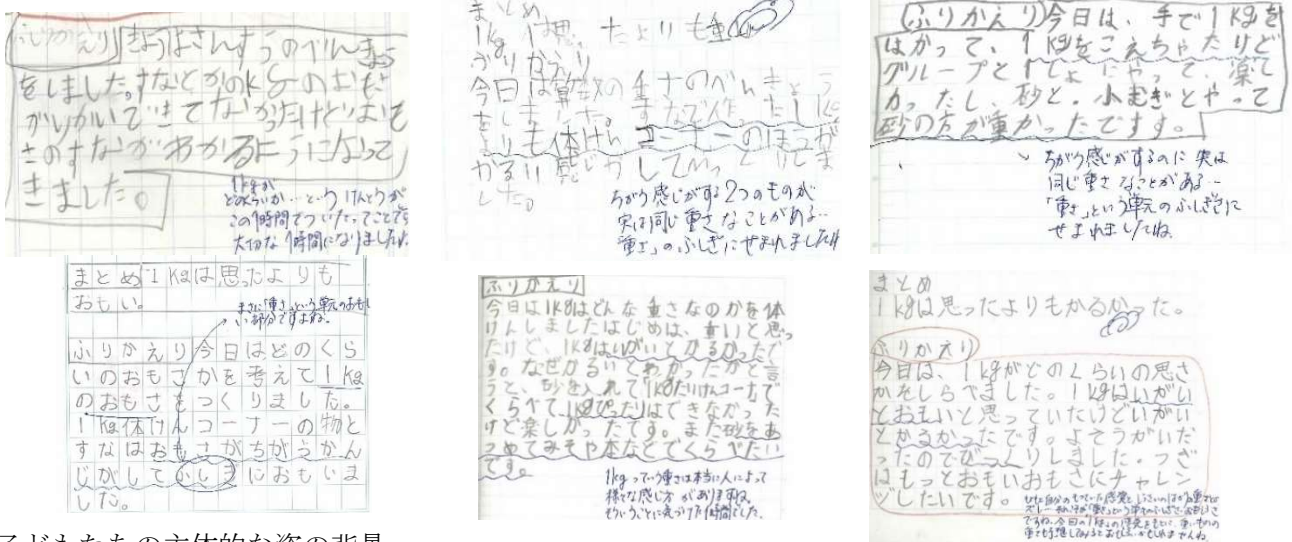 ふりかえり きょうはさんすうのべんきょう
をしました。すなとかのkgのおも
きました。
1kgが
どのくらいか…という けんとうが
この1時間でついたってことです
大切な1時間になりましたね。
まとめ
1kg
ふりかえり
今日は算数の重さのべんきょう
をしました。すなで作った1kg
よりも体けんコーナーのほうが
かるい感じがして
した。
ちがう感じがする2つのものが
実は同じ重さなことがある…
「重さ」のふしぎにせまれましたね
ふりかえり 今日は、手で1kgを
はかって、1kgをこえちゃたりど
グループと1しょにやって、楽し
かったし、砂と。小むぎとやって
砂の方が重かったですす。
ちがう感じがするのに 実は
同じ重さなことがある…
「重さ」という単元のふしぎに
せまれましたね。
まとめ 1kgは思ったよりも
おもい。
まさに「重さ」という単元のおもしろ
い部分ですよね。
ふりかえり 今日はどのくら
いのおもさかを考えて1kg
のおもさをつくりました。
1kg体けんコーナーの物と
すなはおもさがちがうかん
じがしてふしぎにおもいま
した。
ふりかえり
今日は1kgはどんな重さなのかを体
けんしましたはじめは、重いと思っ
たけど、1kgはいがいとかるかったで
す。なぜかるいてわかったかと言
うと、砂を入れて1kgたいけんコーナーで
くらべて、1kgぴったりはできなかった
けど楽しかったです。また砂をあ
つめてみそや本などでくらべたい
です。
1kgっていう重さは本当に人によって
様々な感じ方がありますね。
そういうことに気づけた1時間でした。
まとめ
1kgは思ったよりもかるかった。
ふりかえり
今日は、1kgがどのくらいの思さ
かをしらべました。1kgはいがい
とおもいと思っていたけどいがい
とかるかったです。よそうがいだ
ったのでびっくりしました。つぎ
はもっとおもいおもさにチャレン
ジしたいです。
子どもたちの主体的な姿の背景